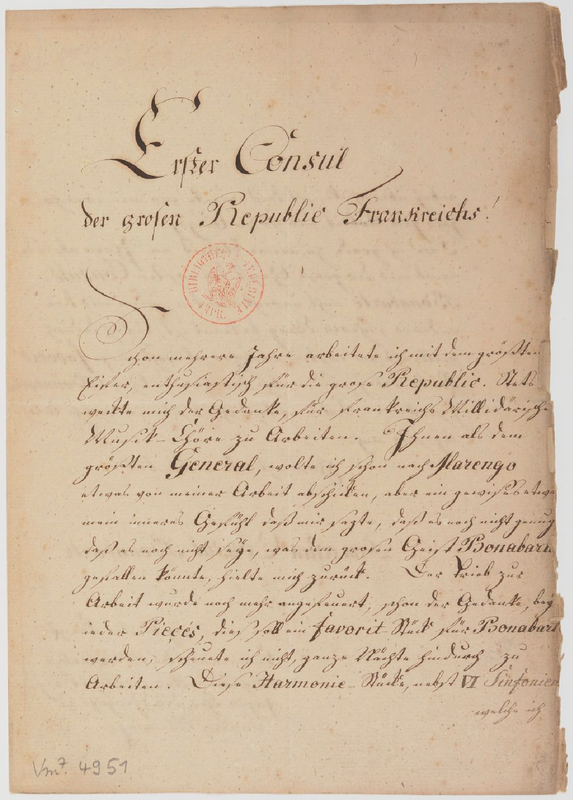 Erster Consul
der grosen Republic Frankreichs!
BIBLIOTHECA IMPERIALIS
IMPR.
Schon mehrere Jahre arbeitete ich mit dem größten
Eifer, enthusiastisch für die grose Republic. Stets
weckte mich der Gedanke, für Frankreichs Millidärische
Musik-Chöre zu Arbeiten. Ihnen als dem
größten General, wolte ich schon nach Marengo
etwas von meiner Arbeit abschicken, aber ein gewißes etwas
mein inneres Gefühl daß mir sagte, daß es noch nicht genug
daß es noch nicht seye, was dem grosen Geist Bonabart
gefallen könnte, hielte mich zurück. Der Trieb zur
Arbeit wurde noch mehr angefeuert, schon der Gedanke, bey
ieder Pieçes, dies soll ein favorit-Stück für Bonabart
werden, scheuete ich nicht, ganze Nächte hindurch zu
Arbeiten. Diese Harmonie-Stücke, nebst VI Sinfonien
welche ich
Vm⁷. 4951